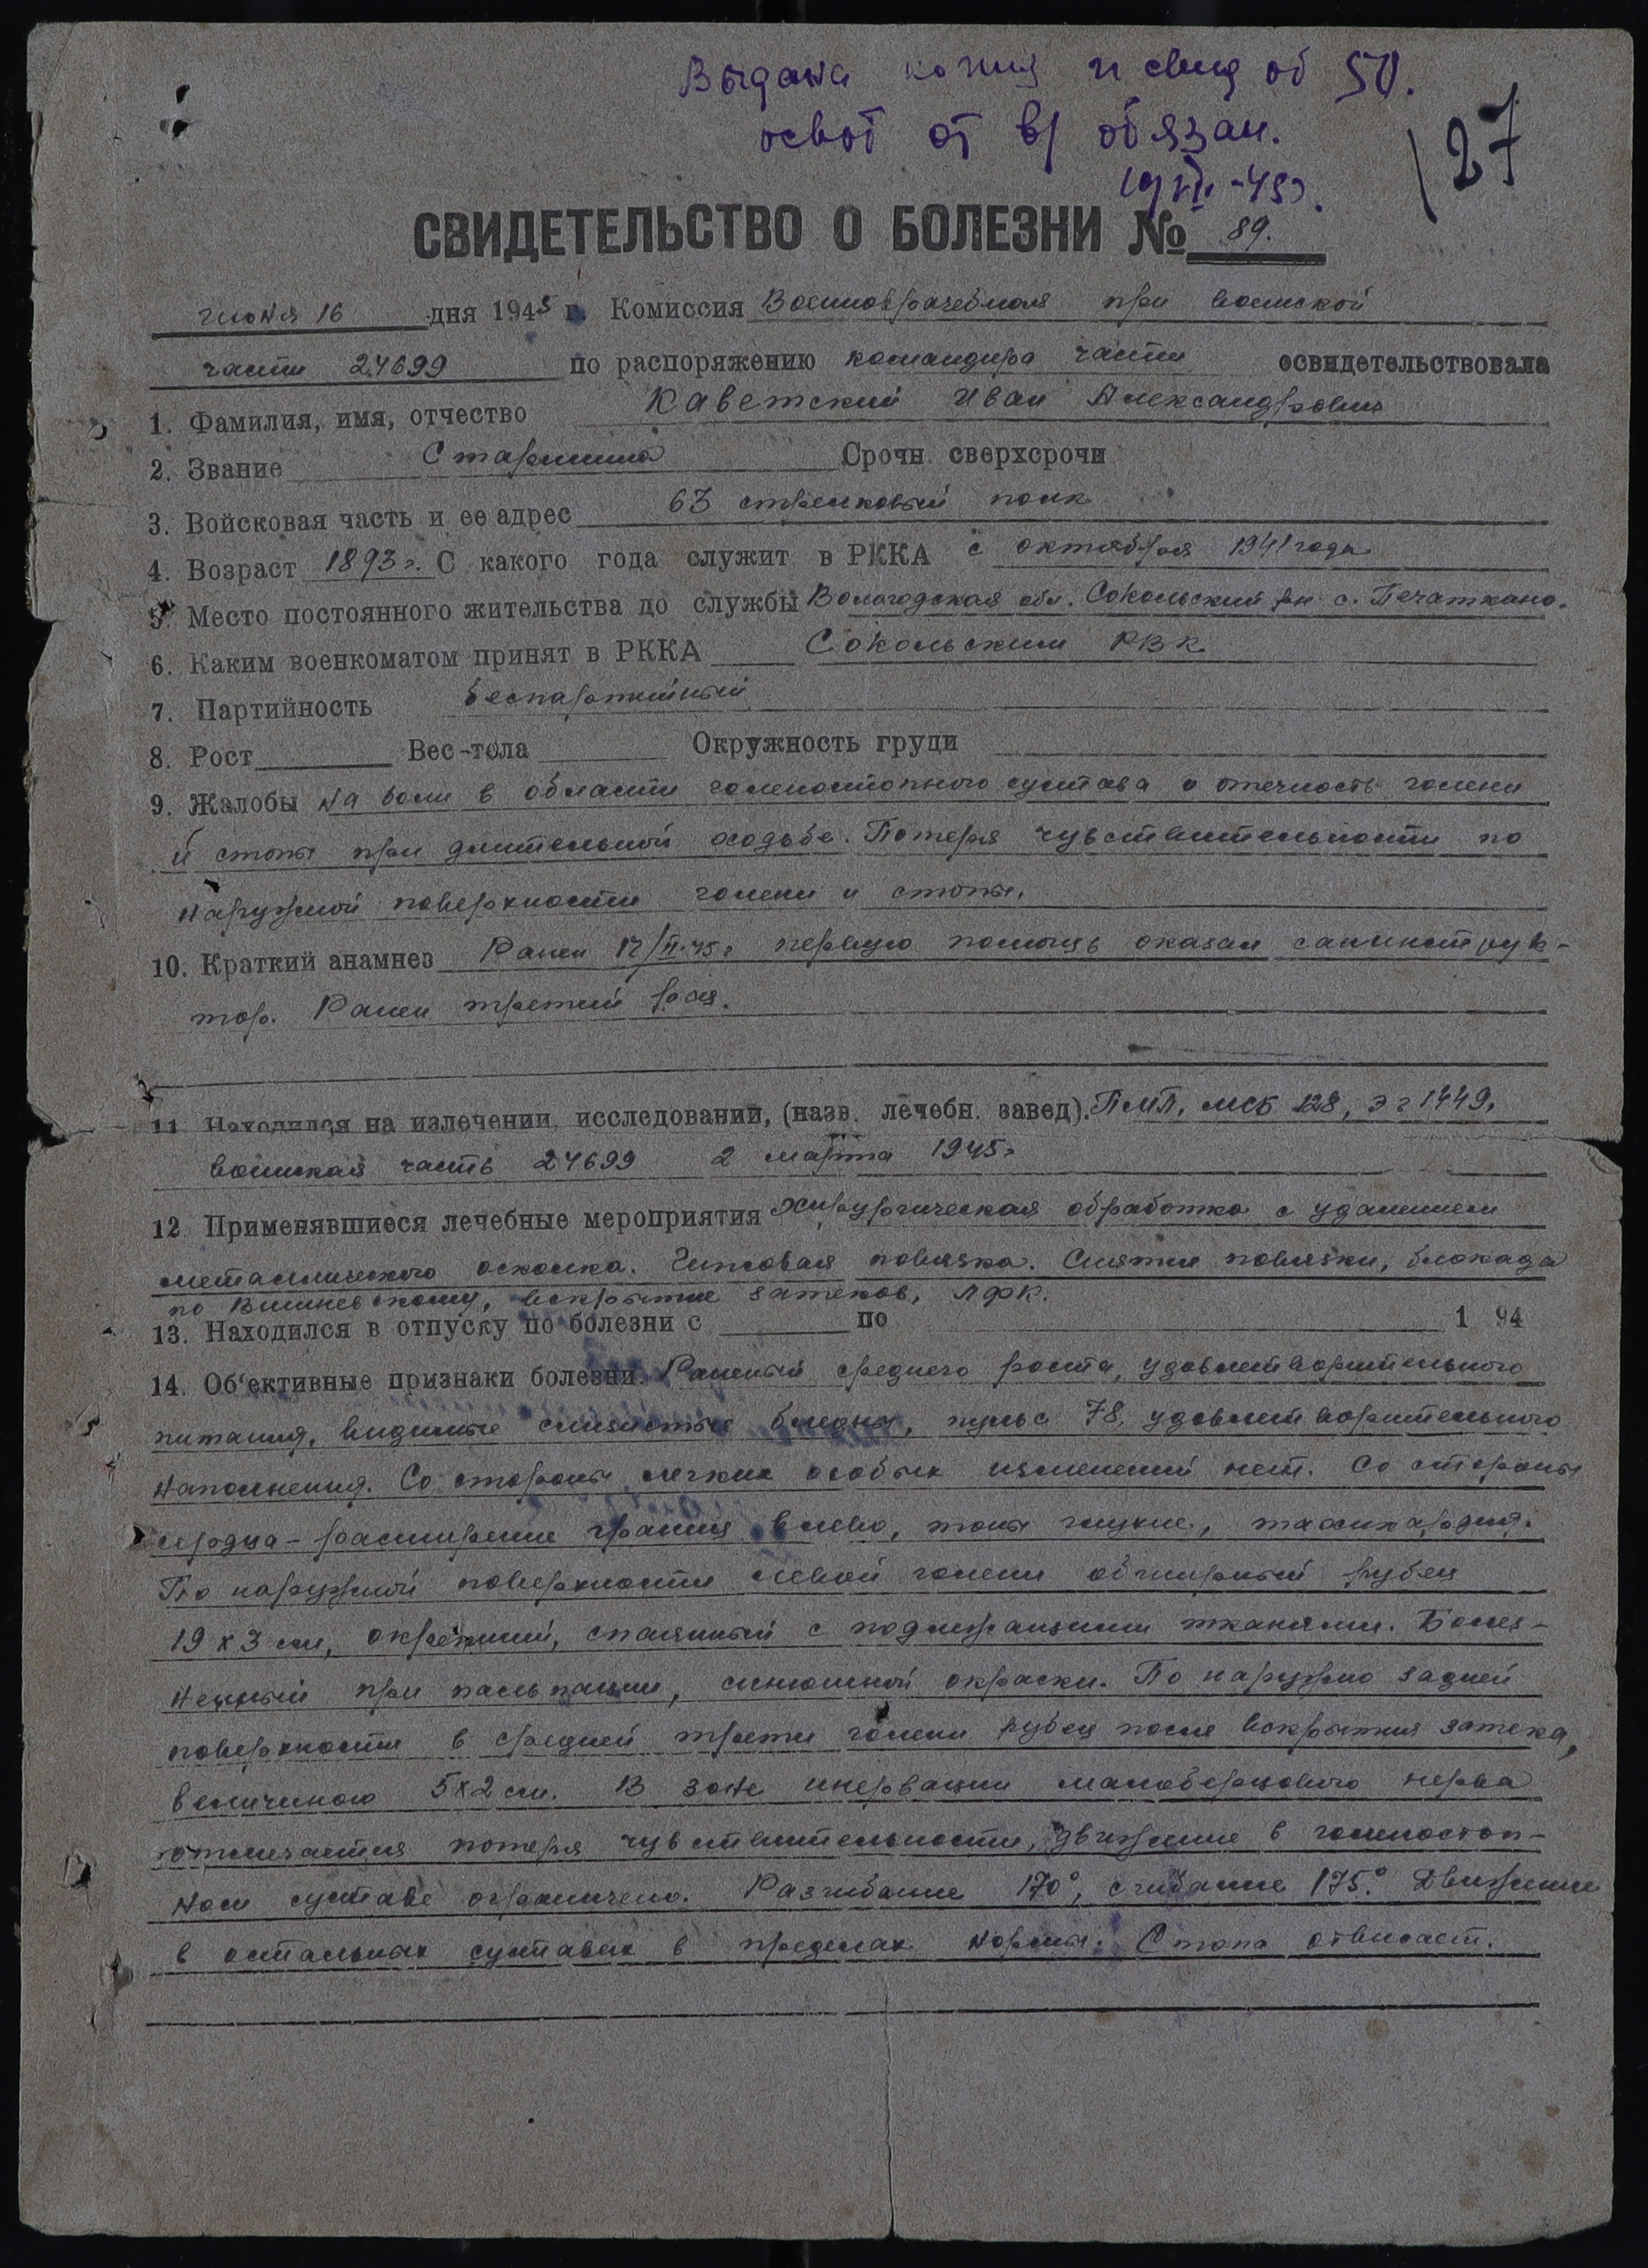 Выдана копия и свид об
освоб от в/ обязан.
27
СВИДЕТЕЛЬСТВО О БОЛЕЗНИ № 89.
июня 16 дня 1945 г. Комиссия Военноврачебная при воинской
части 24699 по распоряжению командира части освидетельствовала
1. Фамилия, имя, отчество Каветский Иван Александрович
2. Звание Старшина Срочн. сверхсрочн
3. Войсковая часть и ее адрес 63 стрелковый полк
4. Возраст 1893 г. С какого года служит в РККА с октября 1941 года
5. Место постоянного жительства до службы Вологодская обл. Сокольский рн с. Печаткино.
6. Каким военкоматом принят в РККА Сокольским РВК.
7. Партийность беспартийный
8. Рост Вес-тела Окружность груди
9. Жалобы на боли в области голеностопного сустава о отечность голени
и стопы при длительной ходьбе. Потеря чувствительности по
наружной поверхности голени и стопы.
10. Краткий анамнез Ранен 17/II-45г первую помощь оказал санинструк-
тор. Ранен третий раз.
11 Находился на излечении, исследовании, (назв. лечебн. завед). ПМП, МСБ 128, ЭГ 1449,
воинская часть 24699 2 марта 1945г
12 Применявшиеся лечебные мероприятия Хирургическая обработка с удалением
металлического осколка. Гипсовая повязка. Снятие повязки, блокада
по Вишневскому, вскрытие затеков, ЛФК.
13. Находился в отпуску по болезни с по 1 94
14. Об‘ективные признаки болезни. Раненый среднего роста, удовлетворительного
питания, видимые слизистые бледны, пульс 78, удовлетворительного
наполнения. Со стороны легких особых изменений нет. Со стороны
сердца - расширение границ влево, тоны глухие, тахикардия.
По наружной поверхности левой голени обширный рубец
19 х 3 см, окрепший, спаянный с подлежащими тканями. Болез-
ненный при пальпации, синюшной окраски. По наружно задней
поверхности в средней трети голени рубец после вскрытия затека,
величиною 5х2 см. В зоне инервации малоберцового нерва
отмечается потеря чувствительности, движение в голеностоп-
ном суставе ограничено. Разгибание 170°, сгибание 175°. Движение
в остальных суставах в пределах нормы. Стопа отвисает.